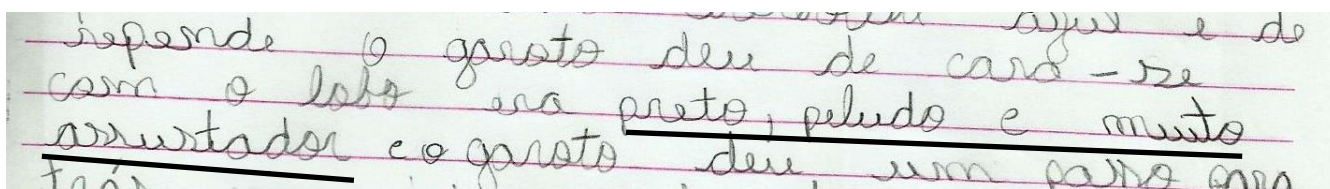 azul e de
repende o garoto deu de cara-se
com o lobo era preto, peludo e muito
assustador e o garoto deu um passo para